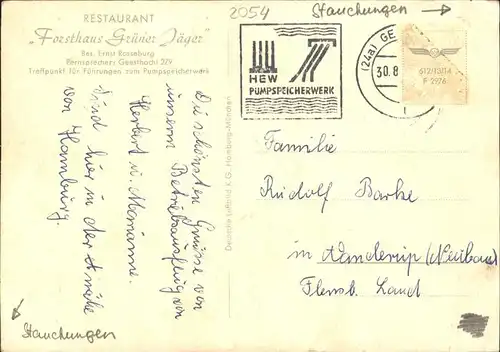 RESTAURANT
"Forsthaus Grüner Jäger"
Bes. Ernst Rosseburg
Fernsprecher: Geesthacht 219
Treffpunkt für Führungen zum Pumpspeicherwerk
2054
Stauchungen
(24a) GE
30.8
HEW
PUMPSPEICHERWERK
612/13/14
F 2976
Die schönsten Grüsse von
unserm Betriebsausflug von
Herbert u. Marianne.
Sind hier in der Nähe
von Hamburg.
Deutsche Luftbild K.G., Hamburg-München
Familie
Rudolf Barke
in Wanderup (Neubau)
Flensb. Land
Stauchungen